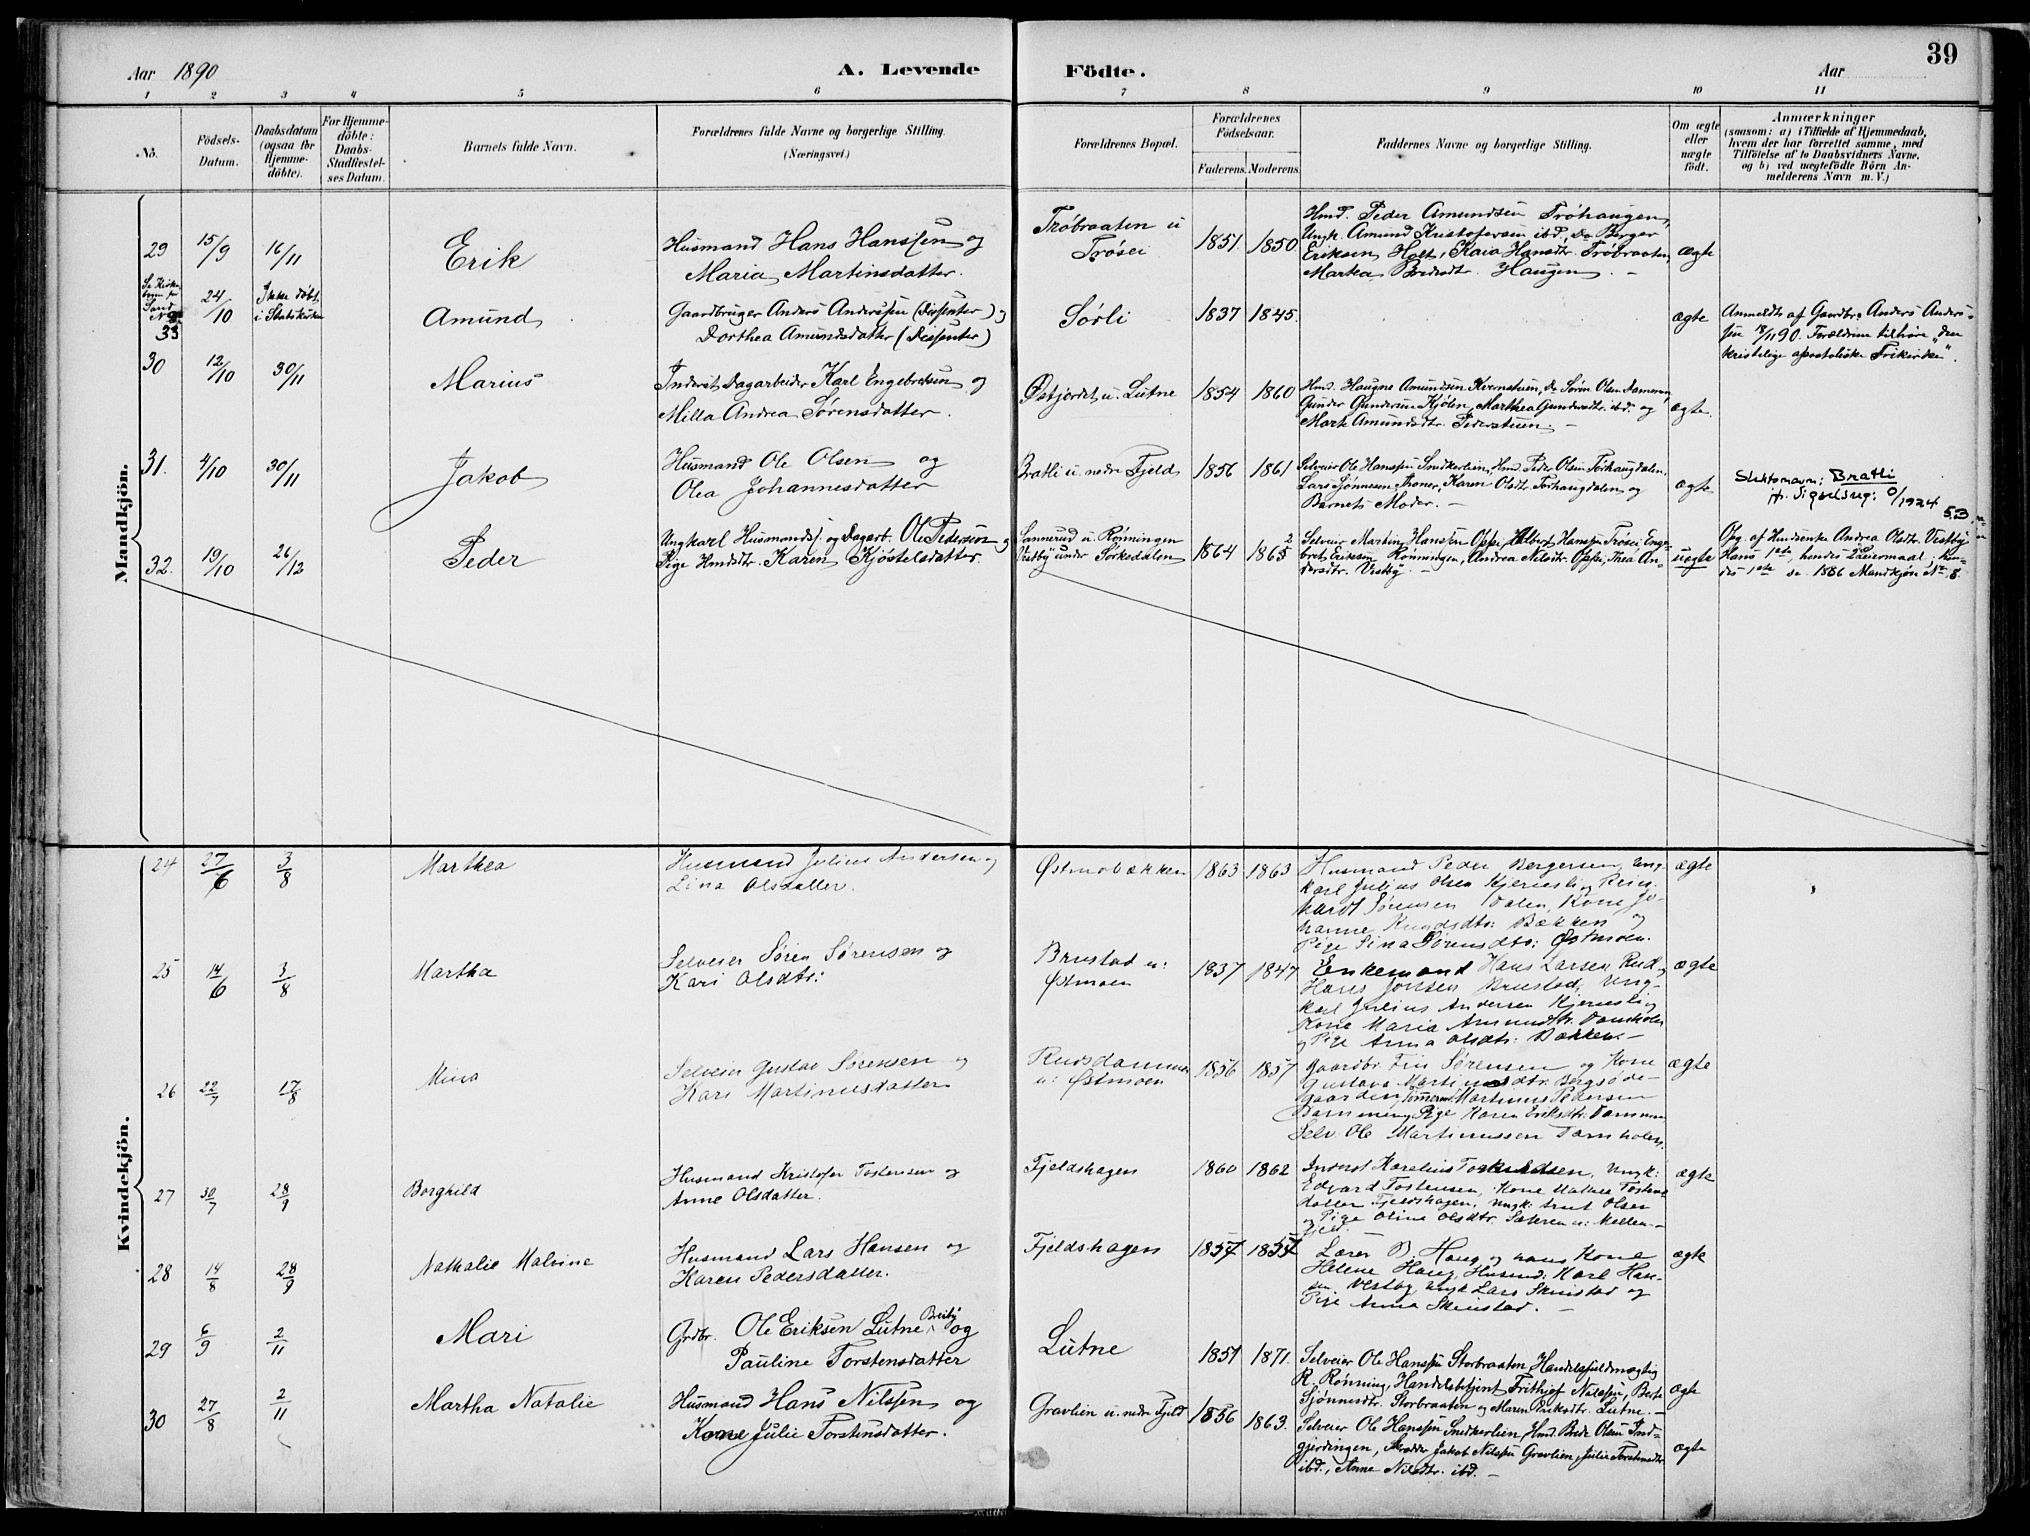 Aar 1890
A. Levende
Födte.
Aar
39
1 2 3 4 5 6 7 8 9 10 11
No.
Födsels-Datum.
Daabsdatum (ogsaa for Hjemme-döbte).
For Hjemme-döbte: Daabs-Stadfæstel-ses Datum.
Barnets fulde Navn.
Forældrenes fulde Navne og borgerlige Stilling. (Næringsvei.)
Forældrenes Bopæl.
Forældrenes Födselsaar.
Faderens.
Moderens.
Faddernes Navne og borgerlige Stilling.
Om ægte eller uægte födt.
Anmærkninger
(saasom: a) i Tilfælde af Hjemmedaab,
hvem der har forrettet samme, med
Tilföielse af to Daabsvidners Navne,
og b) ved uægtefödte Börn An-
melderens Navn m. V.)
Mandkjön.
29 15/9 16/11 Erik
Husmand Hans Hanssen og
Maria Martinsdatter.
Trøbraaten u
Trøsei
1851. 1850
Hmd. Peder Amundsen Trøhaugen,
Ungk. Amund Kristofersen ibd, Do Berger
Eriksen Holt, Kaia Hansdtr. Trøbraaten,
Marthea Haugen. -
ægte
33 24/10 Ikke døbt
i Statskirken
Amund
Gaardbruger Anders Anderssen (Dissenter) og
Dorthea Amundsdatter (Dissenter)
Sørli
1837 1845.
ægte
Anmeldt af Gaardbr. Anders Anders-
sen 18/11 90. Forældrene tilhøre "den
kristelige apostoliske Frikirke".
30 12/10 30/11 Marius
Inderst Dagarbeider Karl Engebretsen og
Milla Andrea Sørensdatter.
Østjordet u. Lutne
1854 1860
Hmd. Haugne Amundsen Kvernstuen, Do Søren Olsen Dammen,
Gunder Gundersen Kjølen, Marthea Gundersdtr. ibd. og
Marte Amundsdtr. Pederstuen. -
ægte.
31. 4/10 30/11 Jakob
Husmand Ole Olsen og
Olea Johannesdatter
Bratli u. nedre Fjeld
1856 1861
Selveier Ole Hanssen Snedkerlien, Hmd. Peder Olsen Torhaugdalen,
Lars Sjønnesen Moner, Karen Olsdtr. Torhaugdalen og
Barnets Moder. -
ægte
Slektsnavn: Bratli
53
32. 19/10 26/12 Peder
Ungkarl Husmandss. og Dagarb. Ole Pedersen og
Pige Hmdsdtr. Karen Kjøstelsdatter
Sannerud u. Rønningen
Vestby under Sørkedalen
1864 1865
Selveier Martin Hanssen Oppe, Albert Hanssen Trøsei, Enge-
bret Eriksen Rønningen, Andrea Nilsdtr. Oppe, Thea An-
dersdtr. Vestby. -
uægte
Opg. af Husenke Andrea Olsdtr. Vestby
Hans 1ste, hendes 2det Leiermaal, hen-
des 1ste se 1886 Mandkjøn No 8.
Kvindekjön.
24 27/6 3/8 Marthea
Husmand Julius Andersen og
Lina Olsdatter.
Østmobækken
1863 1863
Husmand Peder Bergersen, Ung-
karl Julius Olsen Kjernesli, Rein-
hardt Sørensen Dalen, Kone Jo-
hanne Knudsdtr: Bækken og
Pige Lina Sørensdtr: Østmoen.
ægte
25 14/6 3/8 Martha
Selveier Søren Sørensen og
Kari Olsdtr:
Brustad u:
Østmoen
1837 1847
Enkemand Hans Larsen Rud,
Hans Jonsen Brustad, Ung-
karl Julius Andersen Kjernesli,
Kone Maria Amundsdtr. Damholen
og Pige Anna Olsdtr: Bækken. -
ægte
26 22/7 17/8 Mina
Selveier Gustav Sørensen og
Kari Martinusdatter
Rudsdammen
u: Østmoen
1856 1857
Gaardbr. Fin Sørensen og Kone
Gustava Martinusdtr. Bergsøde-
gaarden, Tømmerm. Martinus Pedersen
Dammen, Pige Karen Eriksdtr. Dammen
Selv. Ole Martinussen Damholen.
ægte
27 30/7 28/9 Borghild
Husmand Kristofer Tostensen og
Anne Olsdatter.
Fjeldshagen
1860 1862
Inderst Karelius Torkildsen, Ungk:
Edvard Tostensen, Kone Mathea Tosten-
datter Fjeldshagen, Ungk: Arnt Olsen
og Pige Oline Olsdtr. Sæteren u: Mellem-
fjeld.
ægte
28 14/8 28/9 Nathalie Malvine
Husmand Lars Hansen og
Karen Pedersdatter.
Fjeldshagen
1857 1857
Lærer B. Haug og hans Kone
Helene Haug, Husmd: Karl Han-
sen Vestby, Ungk Lars Skinstad og
Pige Anna Skinstad. -
ægte
29 6/9 2/11 Mari
Grdbr. Ole Eriksen Lutne Breiby og
Pauline Torstensdatter
Lutne
1851 1871.
Selveier Ole Hanssen Storbraaten, Handelsfuldmægtig
R. Rønning, Handelsbetjent Frithjof Nilssen, Berte
Sjønnesdtr. Storbraaten og Maren Eriksdtr. Lutne. -
ægte
30 27/8 2/11 Martha Natalie
Husmand Hans Nilssen og
Kone Julie Torstensdatter.
Gravlien u. nedre Fjeld
1856 1863.
Selveier Ole Hanssen Snedkerlien, Hmd. Brede Olsen Ind-
gjerdingen, Skrædder Jakob Nilssen Gravlien, Julie Torstensdtr.
ibd., Anne Nilsdtr. ibd. -
ægte